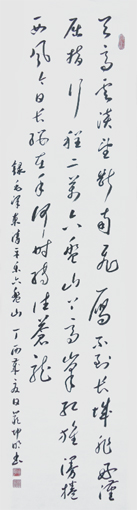 天高云淡望断南飞雁不到长城非好汉
屈指行程二万六盘山上高峰红旗漫捲
西风今日长缨在手何时缚住苍龙
录毛泽东清平乐六盘山丁酉年夏日